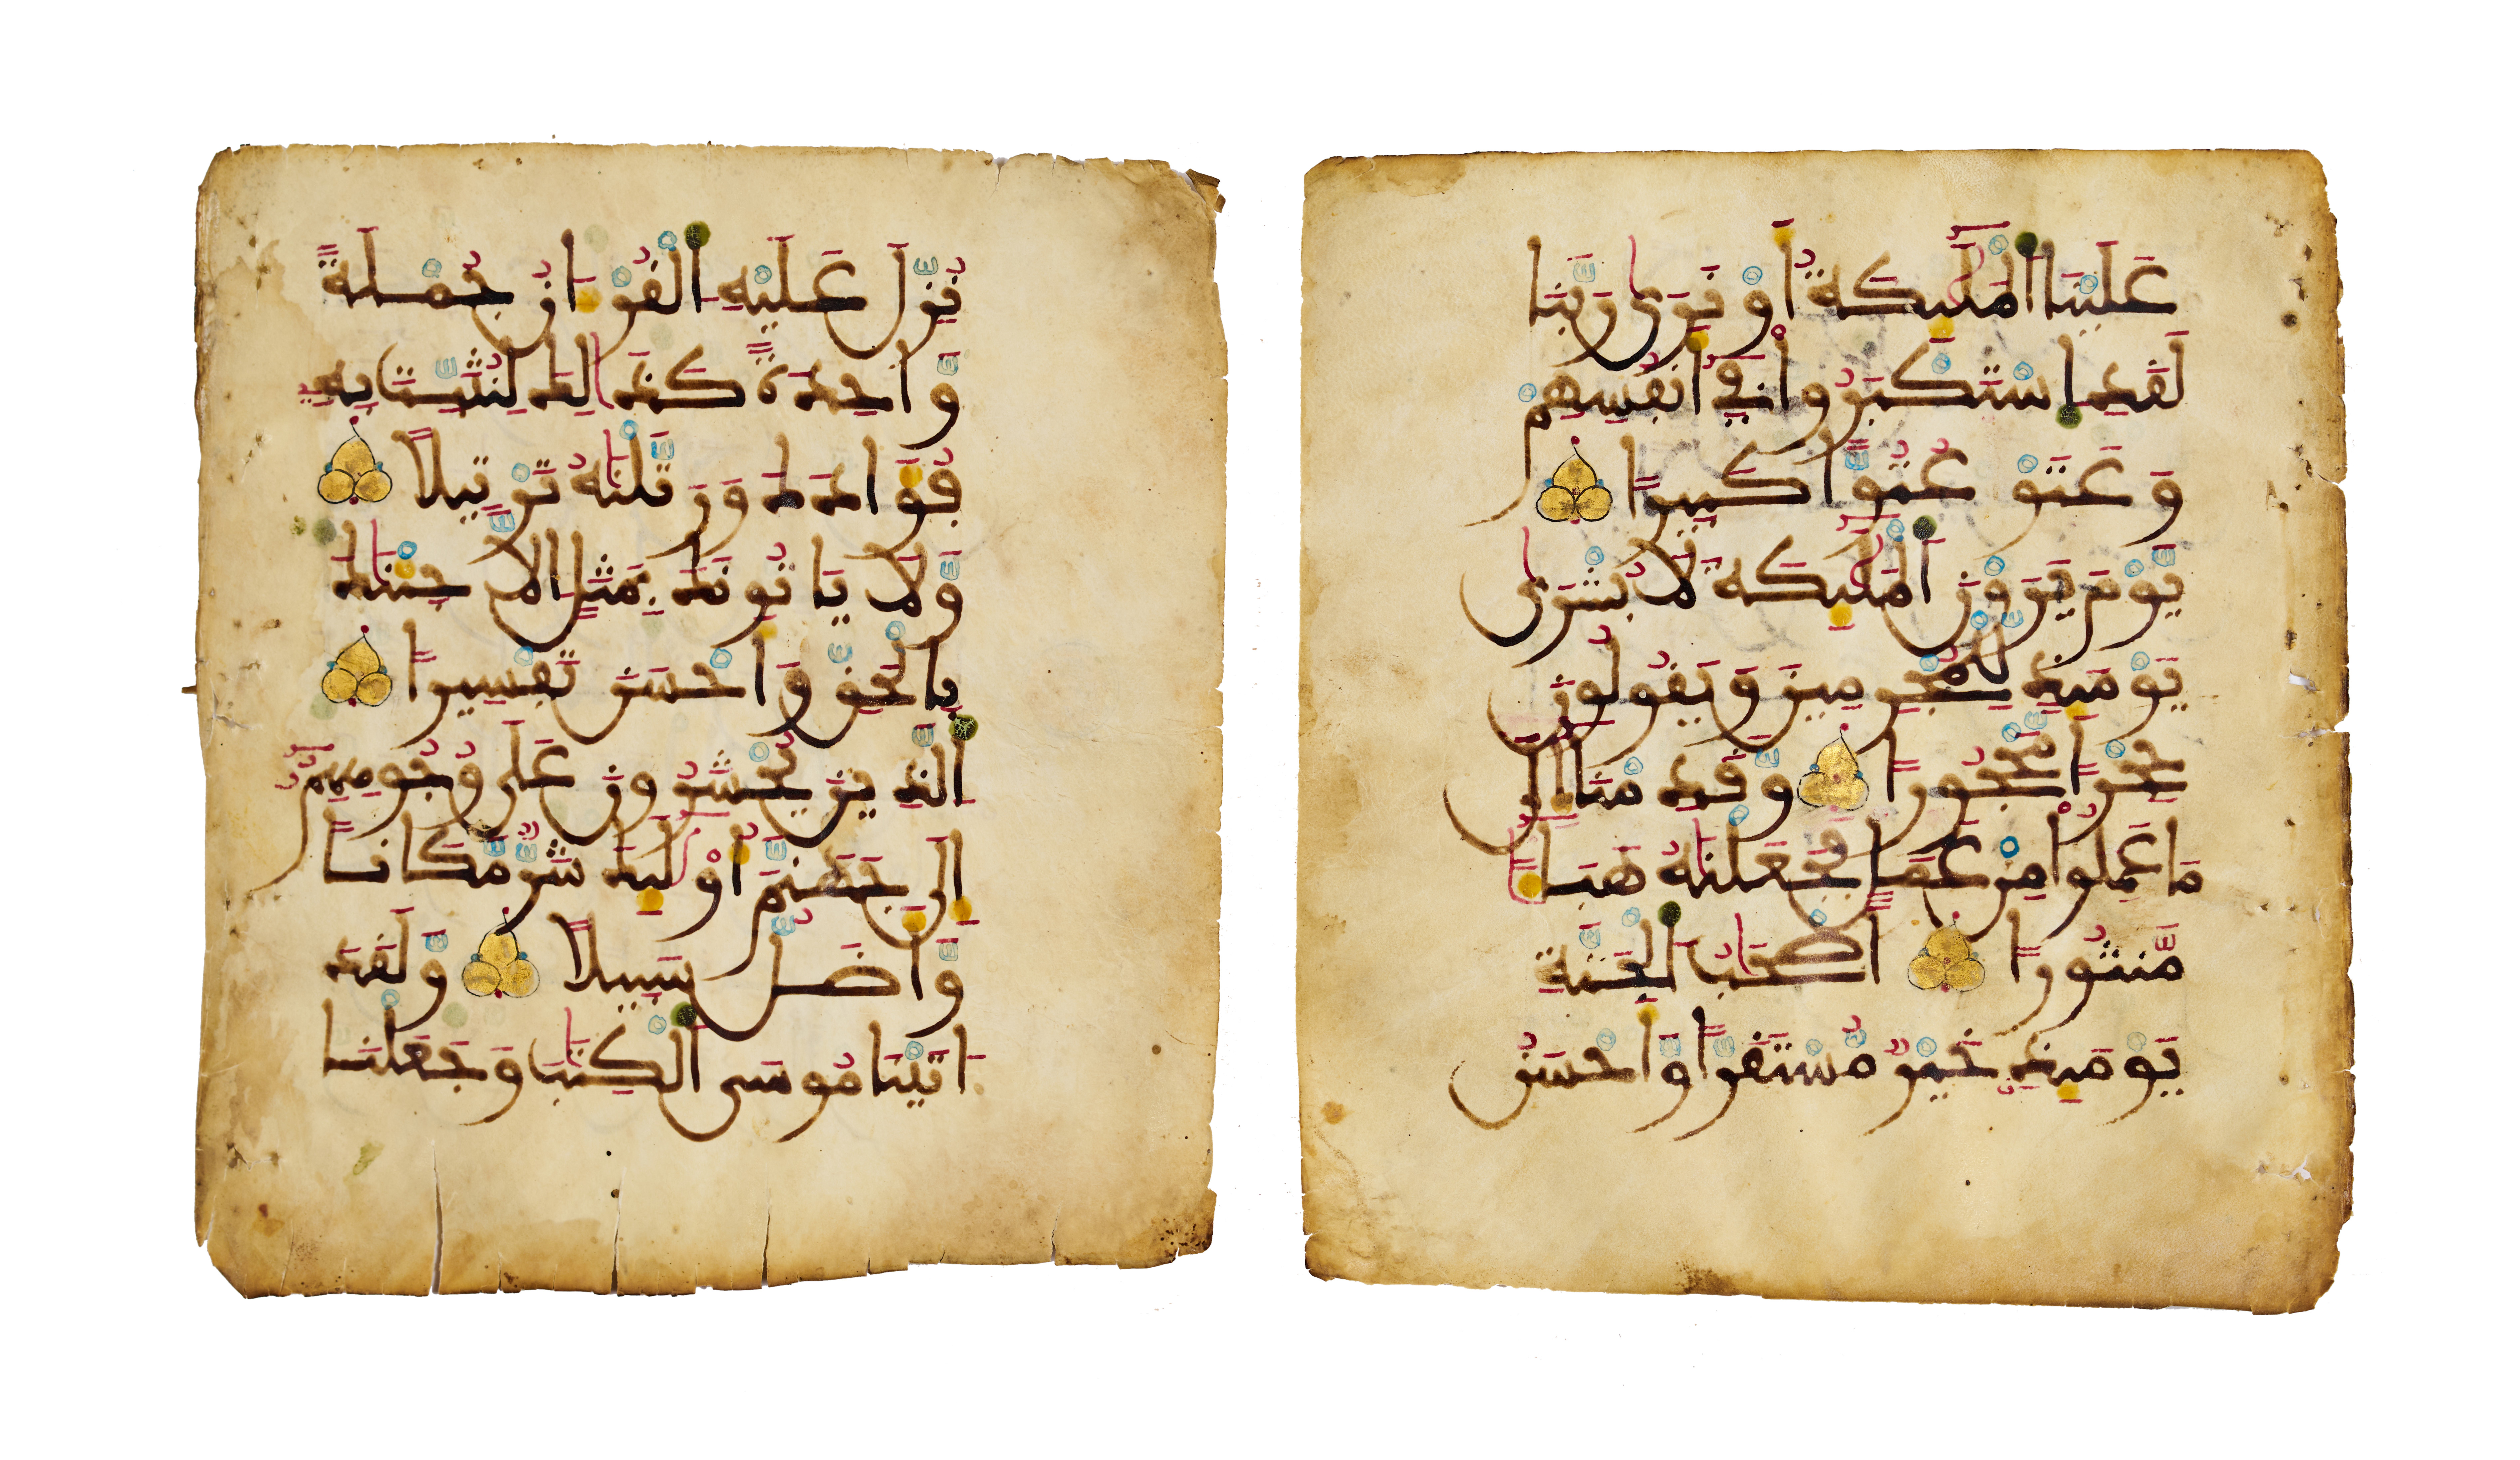 عَلَيْنَا اَ۬لْمَلَٰٓئِكَةُ أَوْ نَرَىٰ رَبَّنَا
لَقَدِ اِ۪سْتَكْبَرُواْ فِےٓ أَنفُسِهِمْ
وَعَتَوْ عُتُوّٗا كَبِيرٗا
يَوْمَ يَرَوْنَ اَ۬لْمَلَٰٓئِكَةَ لَا بُشْرَىٰ
يَوْمَئِذٖ لِّلْمُجْرِمِينَ وَيَقُولُونَ
حِجْرٗا مَّحْجُورٗا وَقَدِمْنَآ إِلَىٰ
مَا عَمِلُواْ مِنْ عَمَلٖ فَجَعَلْنَٰهُ هَبَآءٗ
مَّنثُورًا اَصْحَٰبُ اُ۬لْجَنَّةِ
يَوْمَئِذٍ خَيْرٞ مُّسْتَقَرّٗا وَأَحْسَنُ
نُزِّلَ عَلَيْهِ اِ۬لْقُرْءَانُ جُمْلَةٗ
وَّاحِدَةٗ كَذَٰلِكَ لِنُثَبِّتَ بِهِۦ
فُؤَادَكَ وَرَتَّلْنَٰهُ تَرْتِيلٗا
وَّلَا يَاتُونَكَ بِمَثَلٍ اِلَّا جِئْنَٰكَ
بِالْحَقِّ وَأَحْسَنَ تَفْسِيرًا
اَ۬لَّذِينَ يُحْشَرُونَ عَلَىٰ وُجُوهِهِمُۥٓ
إِلَىٰ جَهَنَّمَ أُوْلَٰٓئِكَ شَرّٞ مَّكَانٗا
وَّأَضَلُّ سَبِيلٗا وَّلَقَدَ
اتَيْنَا مُوسَى اَ۬لْكِتَٰبَ وَجَعَلْنَا